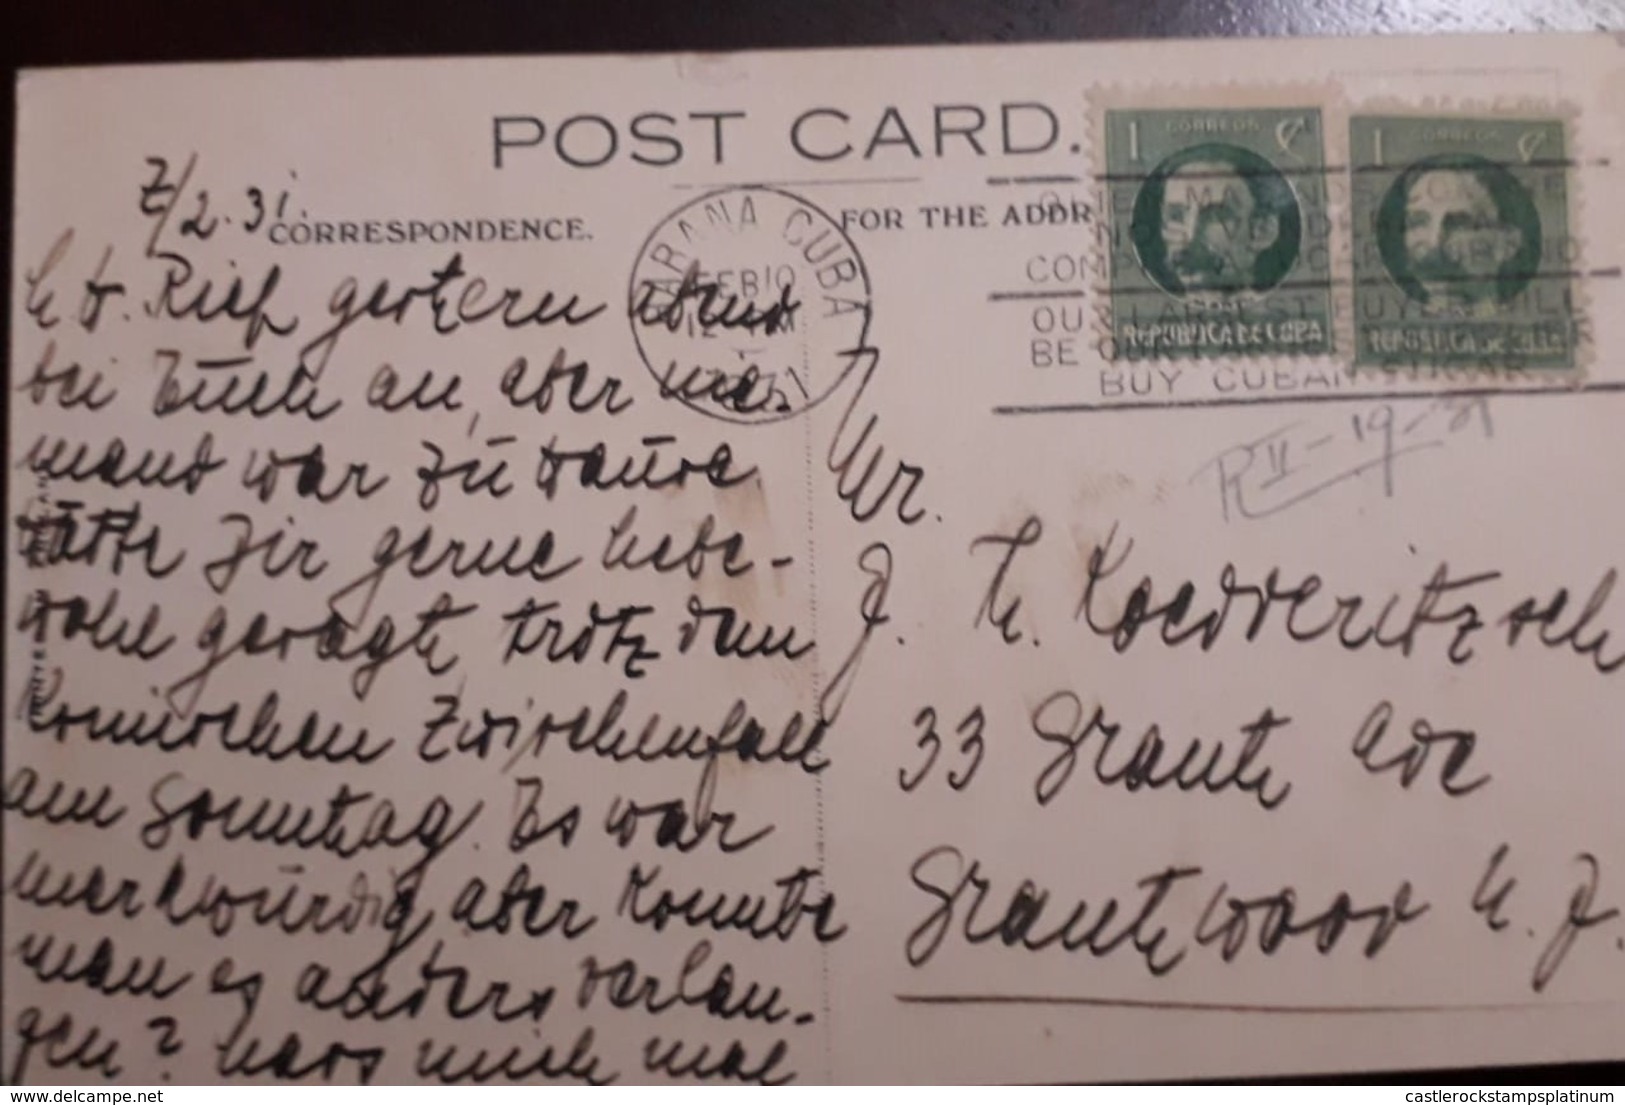 POST CARD.
7/2.31.
CORRESPONDENCE.
FOR THE ADDR
HABANA CUBA
FEB 10
12
1931
1 CORREOS ¢
REPUBLICA DE CUBA
1 CORREOS ¢
REPUBLICA DE CUBA
COM
OUR LARGEST BUYER WILL
BE OUR
BUY CUBAN SUGAR
R II-19-31
Rief gestern abend
bei Euch an, aber nie-
mand war zu Hause.
Hätte Dir gerne Lebe-
wohl gesagt trotz dem
komischen Zwischenfall
am Sonntag. Es war
merkwürdig aber konnte
man es anders verlan-
gen? Lass mich mal
Mr.
J. H. Koedderitzsch
33 Grant Ave
Grantwood N. J.
castlerockstampsplatinum